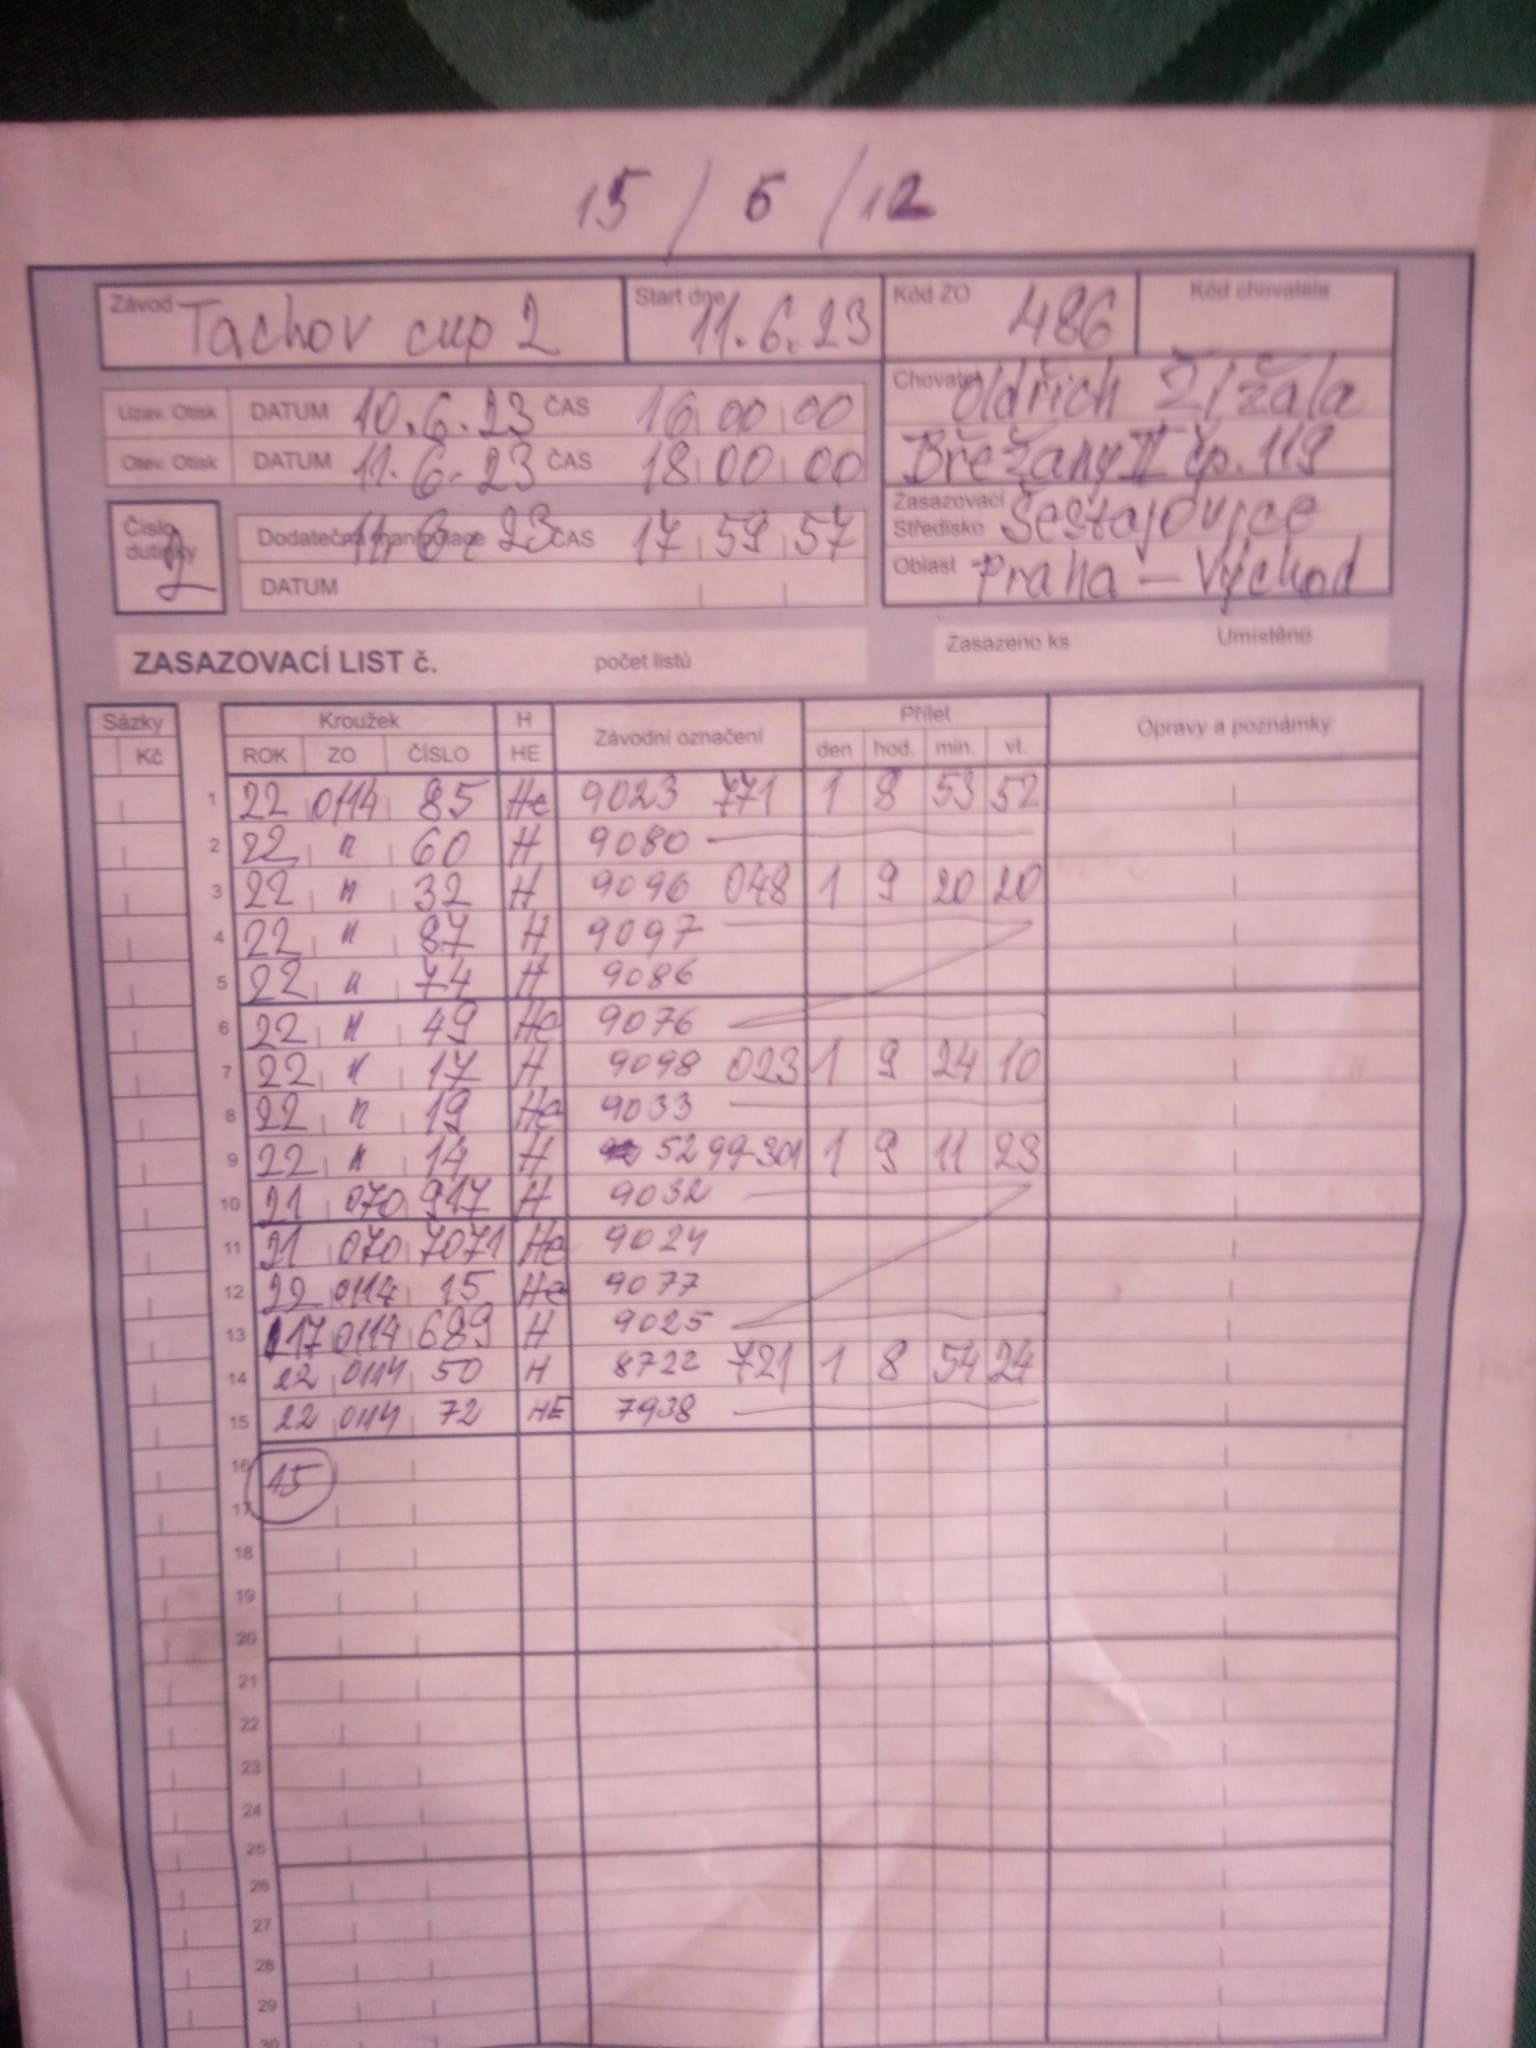 15 / 5 / 12
Závod Tachov cup 2 Start dne 11.6.23 Kód ZO 486 Kód chovatele
Chovatel Oldřich Žížala
Uzav. Otisk DATUM 10.6.23 ČAS 16 00 00
Břežany II čp. 119
Otev. Otisk DATUM 11.6.23 ČAS 18 00 00
Zasazovací Středisko Šestajovice
Číslo dutinky 2 Dodatečná manipulace 11.6.23 ČAS 17 59 57
Oblast Praha - Východ
DATUM
ZASAZOVACÍ LIST č. počet listů Zasazeno ks Umístěno
Sázky Kroužek H Závodní označení Přílet Opravy a poznámky
Kč ROK ZO ČÍSLO HE den hod. min. vt.
1 22 0114 85 He 9023 771 1 8 53 52
2 22 " 60 H 9080
3 22 " 32 H 9096 048 1 9 20 20
4 22 " 87 H 9097
5 22 " 74 H 9086
6 22 " 49 He 9076
7 22 " 17 H 9098 023 1 9 24 10
8 22 " 19 He 9033
9 22 " 14 H 5299-301 1 9 11 23
10 21 070 917 H 9032
11 21 070 7071 He 9024
12 22 0114 15 He 9077
13 17 0114 689 H 9025
14 22 0114 50 H 8722 721 1 8 54 24
15 22 0114 72 HE 7938
16 15
17
18
19
20
21
22
23
24
25
26
27
28
29
30